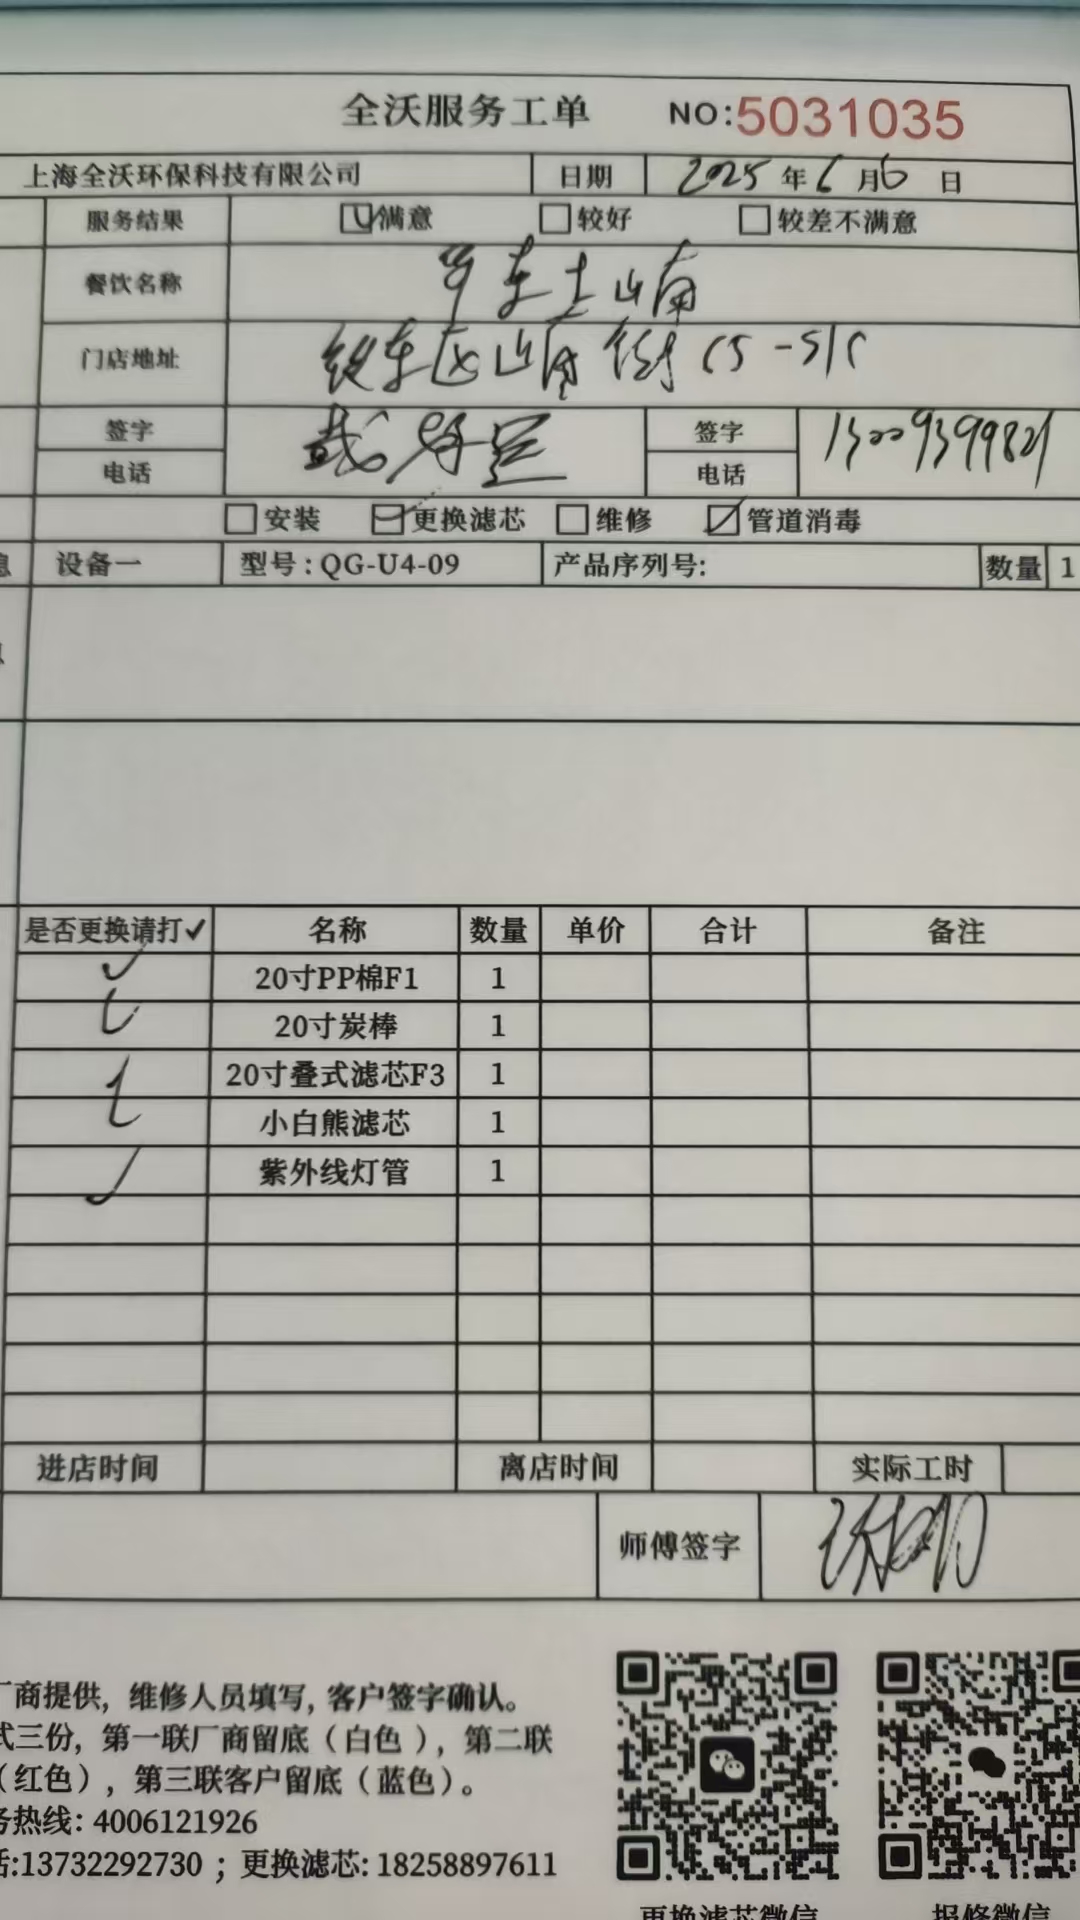 全沃服务工单 NO:5031035
上海全沃环保科技有限公司 日期 2025 年 6 月 6 日
服务结果 满意 较好 较差不满意
餐饮名称
门店地址 铁东区
签字 签字
电话 电话 13009399821
安装 更换滤芯 维修 管道消毒
设备一 型号:QG-U4-09 产品序列号: 数量 1
是否更换请打✓ 名称 数量 单价 合计 备注
✓ 20寸PP棉F1 1
✓ 20寸炭棒 1
20寸叠式滤芯F3 1
✓ 小白熊滤芯 1
✓ 紫外线灯管 1
进店时间 离店时间 实际工时
师傅签字
厂商提供,维修人员填写,客户签字确认。
式三份,第一联厂商留底(白色),第二联
(红色),第三联客户留底(蓝色)。
务热线: 4006121926
话:13732292730 ; 更换滤芯: 18258897611
更换滤芯微信 报修微信